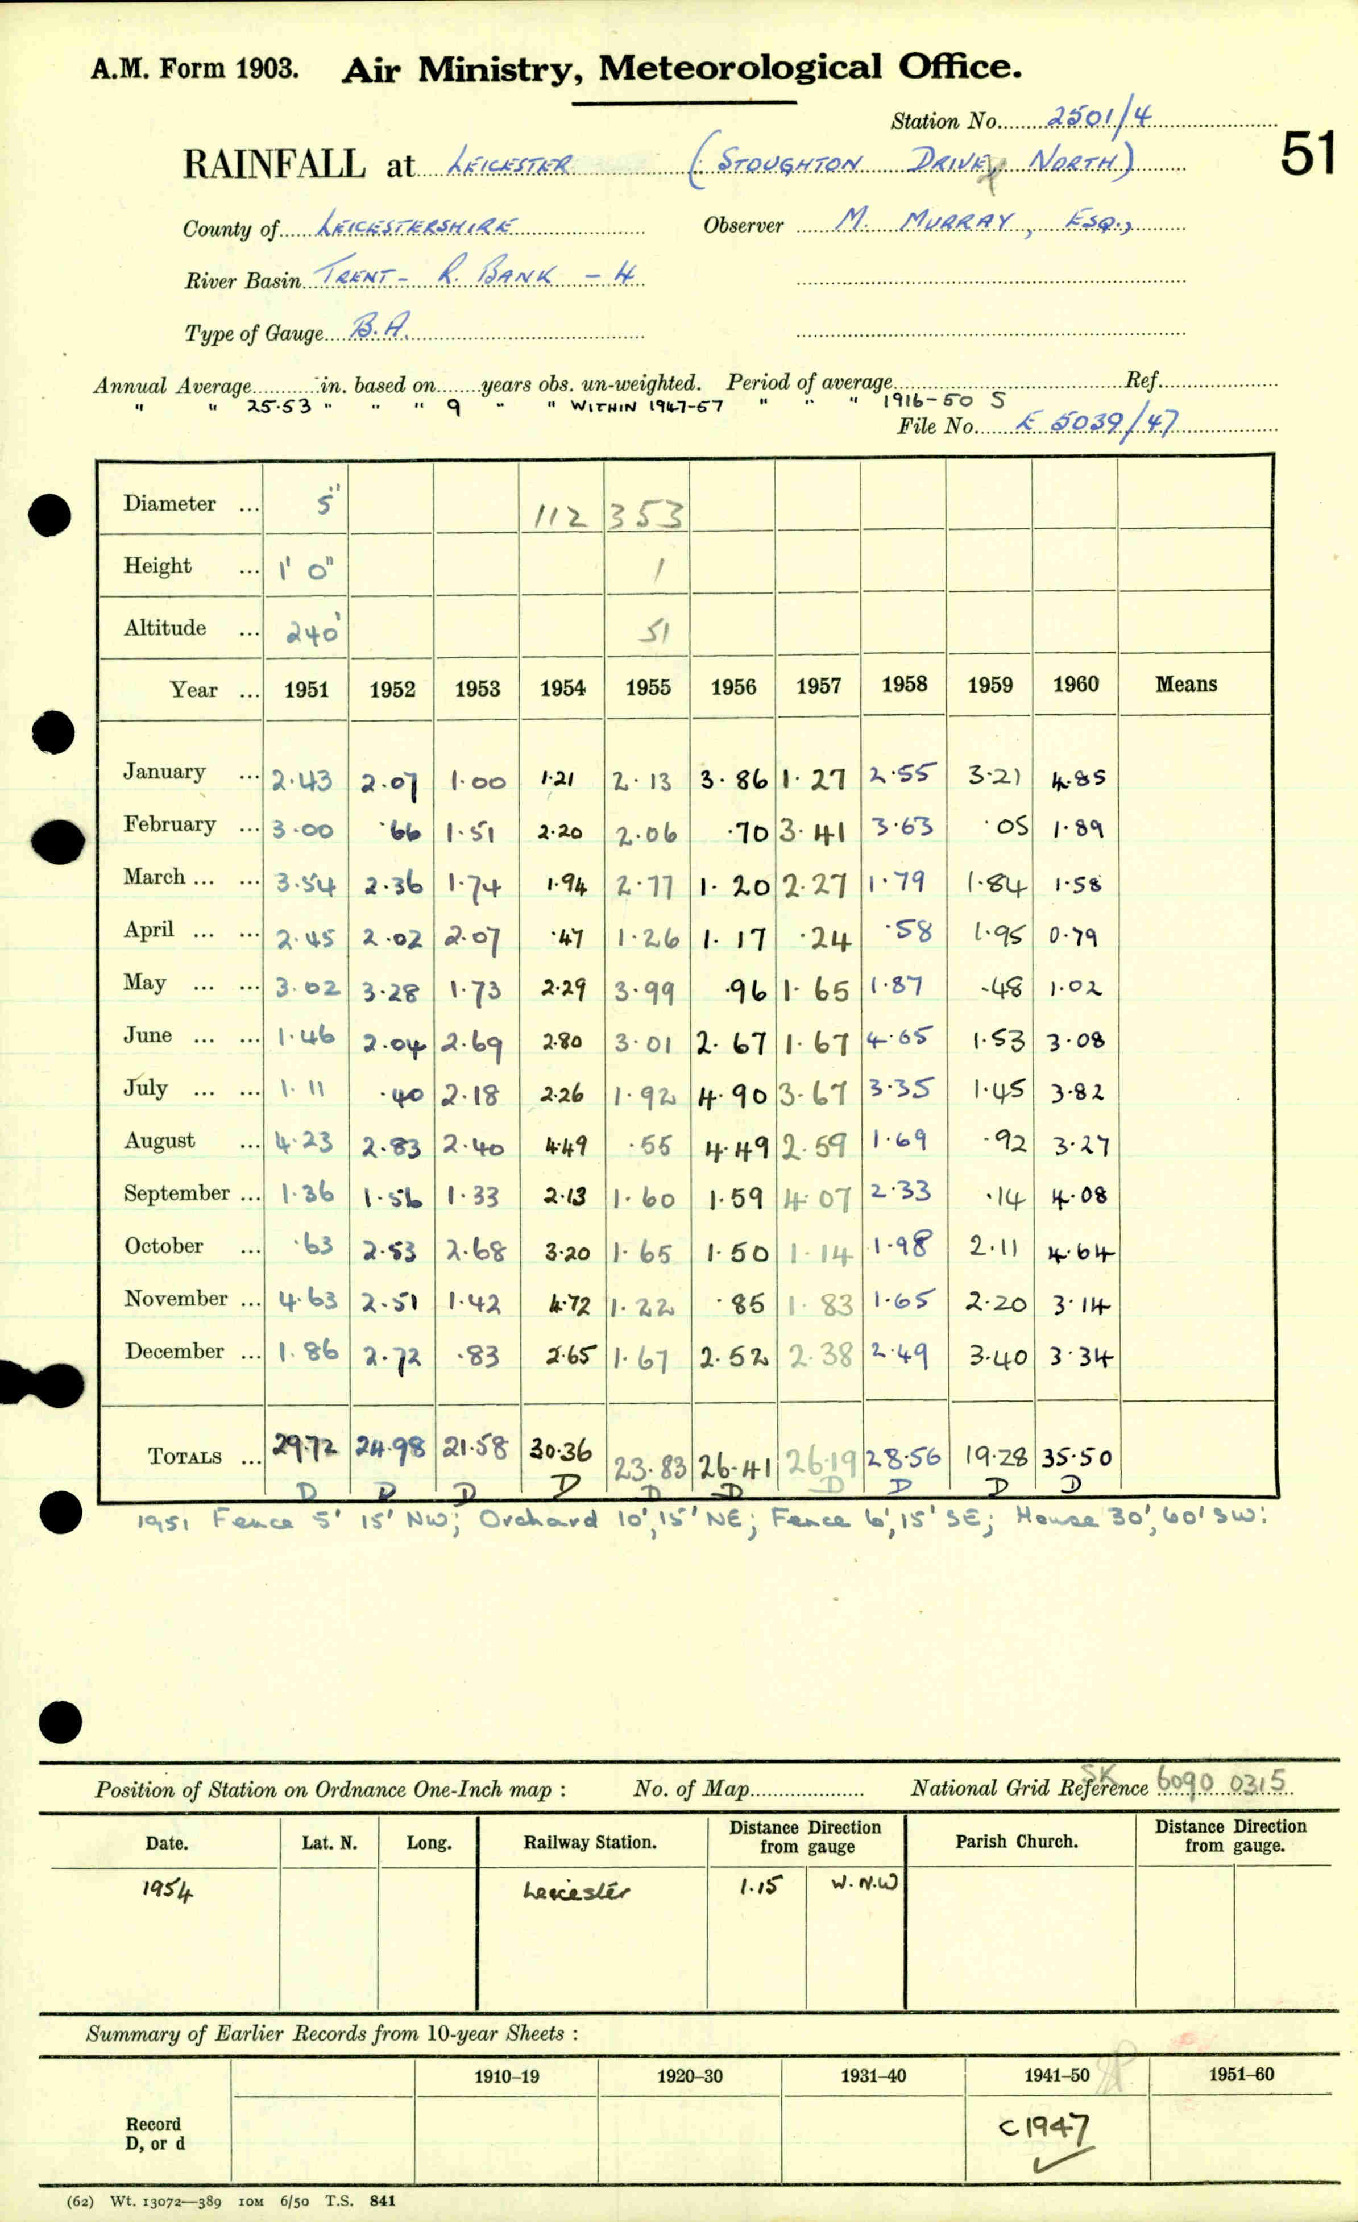 A.M. Form 1903. Air Ministry, Meteorological Office.
Station No. 2501/4
51
RAINFALL at LEICESTER (STOUGHTON DRIVE, NORTH)
County of LEICESTERSHIRE Observer M. MURRAY, ESQ.,
River Basin TRENT - R. BANK - 4
Type of Gauge B.A.
Annual Average in. based on years obs. un-weighted. Period of average Ref.
" " 25.53 " " " 9 " " WITHIN 1947-57 " " " 1916-50 S
File No. E 5039/47
Diameter ... 5" 112 353
Height ... 1' 0" 1
Altitude ... 240' 51
Year ... 1951 1952 1953 1954 1955 1956 1957 1958 1959 1960 Means
January ... 2.43 2.07 1.00 1.21 2.13 3.86 1.27 2.55 3.21 4.85
February ... 3.00 .66 1.51 2.20 2.06 .70 3.41 3.63 .05 1.89
March ... ... 3.54 2.36 1.74 1.94 2.77 1.20 2.27 1.79 1.84 1.58
April ... ... 2.45 2.02 2.07 .47 1.26 1.17 .24 .58 1.95 0.79
May ... ... 3.02 3.28 1.73 2.29 3.99 .96 1.65 1.87 .48 1.02
June ... ... 1.46 2.04 2.69 2.80 3.01 2.67 1.67 4.65 1.53 3.08
July ... ... 1.11 .40 2.18 2.26 1.92 4.90 3.67 3.35 1.45 3.82
August ... 4.23 2.83 2.40 4.49 .55 4.49 2.59 1.69 .92 3.27
September ... 1.36 1.56 1.33 2.13 1.60 1.59 4.07 2.33 .14 4.08
October ... .63 2.53 2.68 3.20 1.65 1.50 1.14 1.98 2.11 4.64
November ... 4.63 2.51 1.42 4.72 1.22 .85 1.83 1.65 2.20 3.14
December ... 1.86 2.72 .83 2.65 1.67 2.52 2.38 2.49 3.40 3.34
TOTALS ... 29.72 24.98 21.58 30.36 23.83 26.41 26.19 28.56 19.28 35.50
D D D D D D D D D D
1951 Fence 5' 15' NW; Orchard 10', 15' NE; Fence 6', 15' SE; House 30', 60' SW:
Position of Station on Ordnance One-Inch map : No. of Map National Grid Reference SK 6090 0315
Date. Lat. N. Long. Railway Station. Distance from Direction gauge Parish Church. Distance from Direction gauge.
1954 Leicester 1.15 W.N.W
Summary of Earlier Records from 10-year Sheets :
1910-19 1920-30 1931-40 1941-50 1951-60
Record
D, or d
C1947
(62) Wt. 13072—389 10M 6/50 T.S. 841